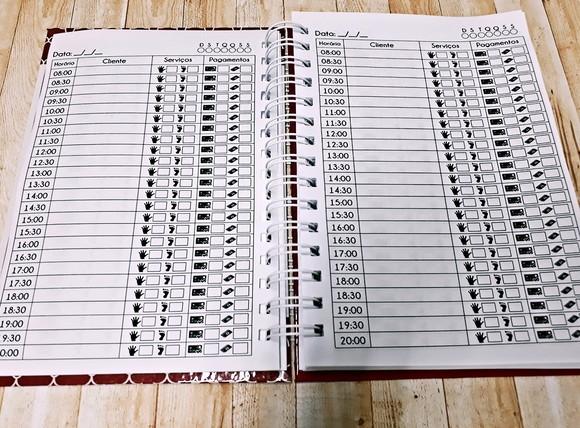 D S T Q Q S S
Data: __/__/__
Horário Cliente Serviços Pagamentos
08:00
08:30
09:00
09:30
10:00
10:30
11:00
11:30
12:00
12:30
13:00
13:30
14:00
14:30
15:00
15:30
16:00
16:30
17:00
17:30
18:00
18:30
19:00
9:30
0:00
D S T Q Q S S
Data: __/__/__
Horário Cliente Serviços Pagamentos
08:00
08:30
09:00
09:30
10:00
10:30
11:00
11:30
12:00
12:30
13:00
13:30
14:00
14:30
15:00
15:30
16:00
16:30
17:00
17:30
18:00
18:30
19:00
19:30
20:00